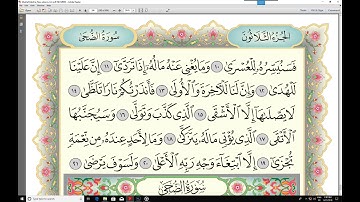 سُورَةُ الضُّحَى
الجُزْءُ الثَّلَاثُونَ
فَسَنُيَسِّرُهُ لِلْعُسْرَىٰ ١٠ وَمَا يُغْنِي عَنْهُ مَالُهُ إِذَا تَرَدَّىٰ ١١ إِنَّ عَلَيْنَا
لَلْهُدَىٰ ١٢ وَإِنَّ لَنَا لَلْآخِرَةَ وَالْأُولَىٰ ١٣ فَأَنذَرْتُكُمْ نَارًا تَلَظَّىٰ ١٤
لَا يَصْلَاهَا إِلَّا الْأَشْقَى ١٥ الَّذِي كَذَّبَ وَتَوَلَّىٰ ١٦ وَسَيُجَنَّبُهَا
الْأَتْقَى ١٧ الَّذِي يُؤْتِي مَالَهُ يَتَزَكَّىٰ ١٨ وَمَا لِأَحَدٍ عِندَهُ مِن نِّعْمَةٍ
تُجْزَىٰ ١٩ إِلَّا ابْتِغَاءَ وَجْهِ رَبِّهِ الْأَعْلَىٰ ٢٠ وَلَسَوْفَ يَرْضَىٰ ٢١
سُورَةُ الضُّحَى